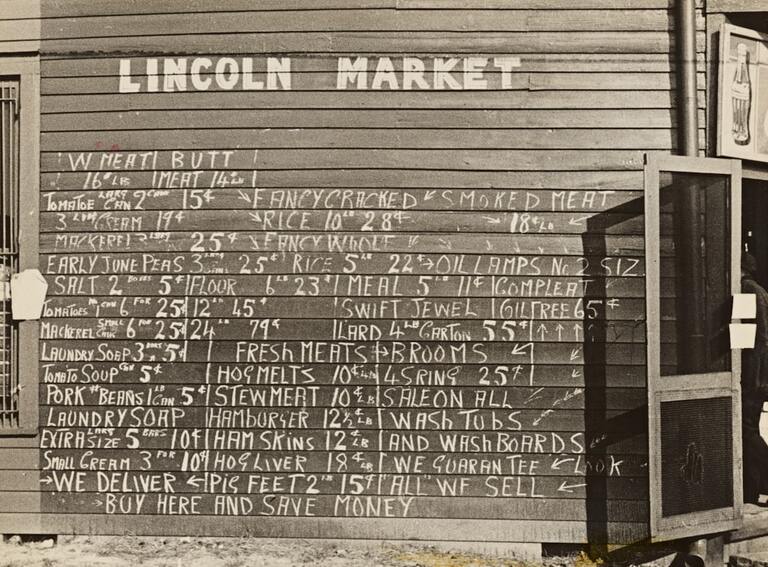 LINCOLN MARKET
W MEAT BUTT
16¢ LB MEAT 14¢ LB
TOMATOE LARG CAN 2 15¢ FANCY CRACKED SMOKED MEAT
3 LARG CREAM 19¢ RICE 10 LB 28¢ 18¢ LB
MACKEREL 25¢ FANCY WHOLE
EARLY JUNE PEAS 3 25¢ RICE 5 LB 22¢ OIL LAMPS No 2 SIZ
SALT 2 BOXES 5¢ FLOUR 6 LB 23¢ MEAL 5 LB 11¢ COMPLEAT
TOMATOES CAN 6 FOR 25¢ 12 LB 45¢ SWIFT JEWEL OIL FREE 65¢
MACKEREL SMALL CANS 6 FOR 25¢ 24 LB 79¢ LARD 4 LB CARTON 55¢
LAUNDRY SOAP 3 BARS 5¢ FRESH MEATS BROOMS
TOMATO SOUP CAN 5¢ HOG MELTS 10¢ LB 4 SRING 25¢
PORK & BEANS 1 LB CAN 5¢ STEW MEAT 10¢ LB SALE ON ALL
LAUNDRY SOAP HAMBURGER 12½¢ LB WASH TUBS
EXTRA LARG SIZE 5 BARS 10¢ HAM SKINS 12½ LB AND WASH BOARDS
SMALL CREAM 3 FOR 10¢ HOG LIVER 18¢ LB WE GUARANTEE LOOK
WE DELIVER PIG FEET 2 LB 15¢ "ALL" WE SELL
BUY HERE AND SAVE MONEY